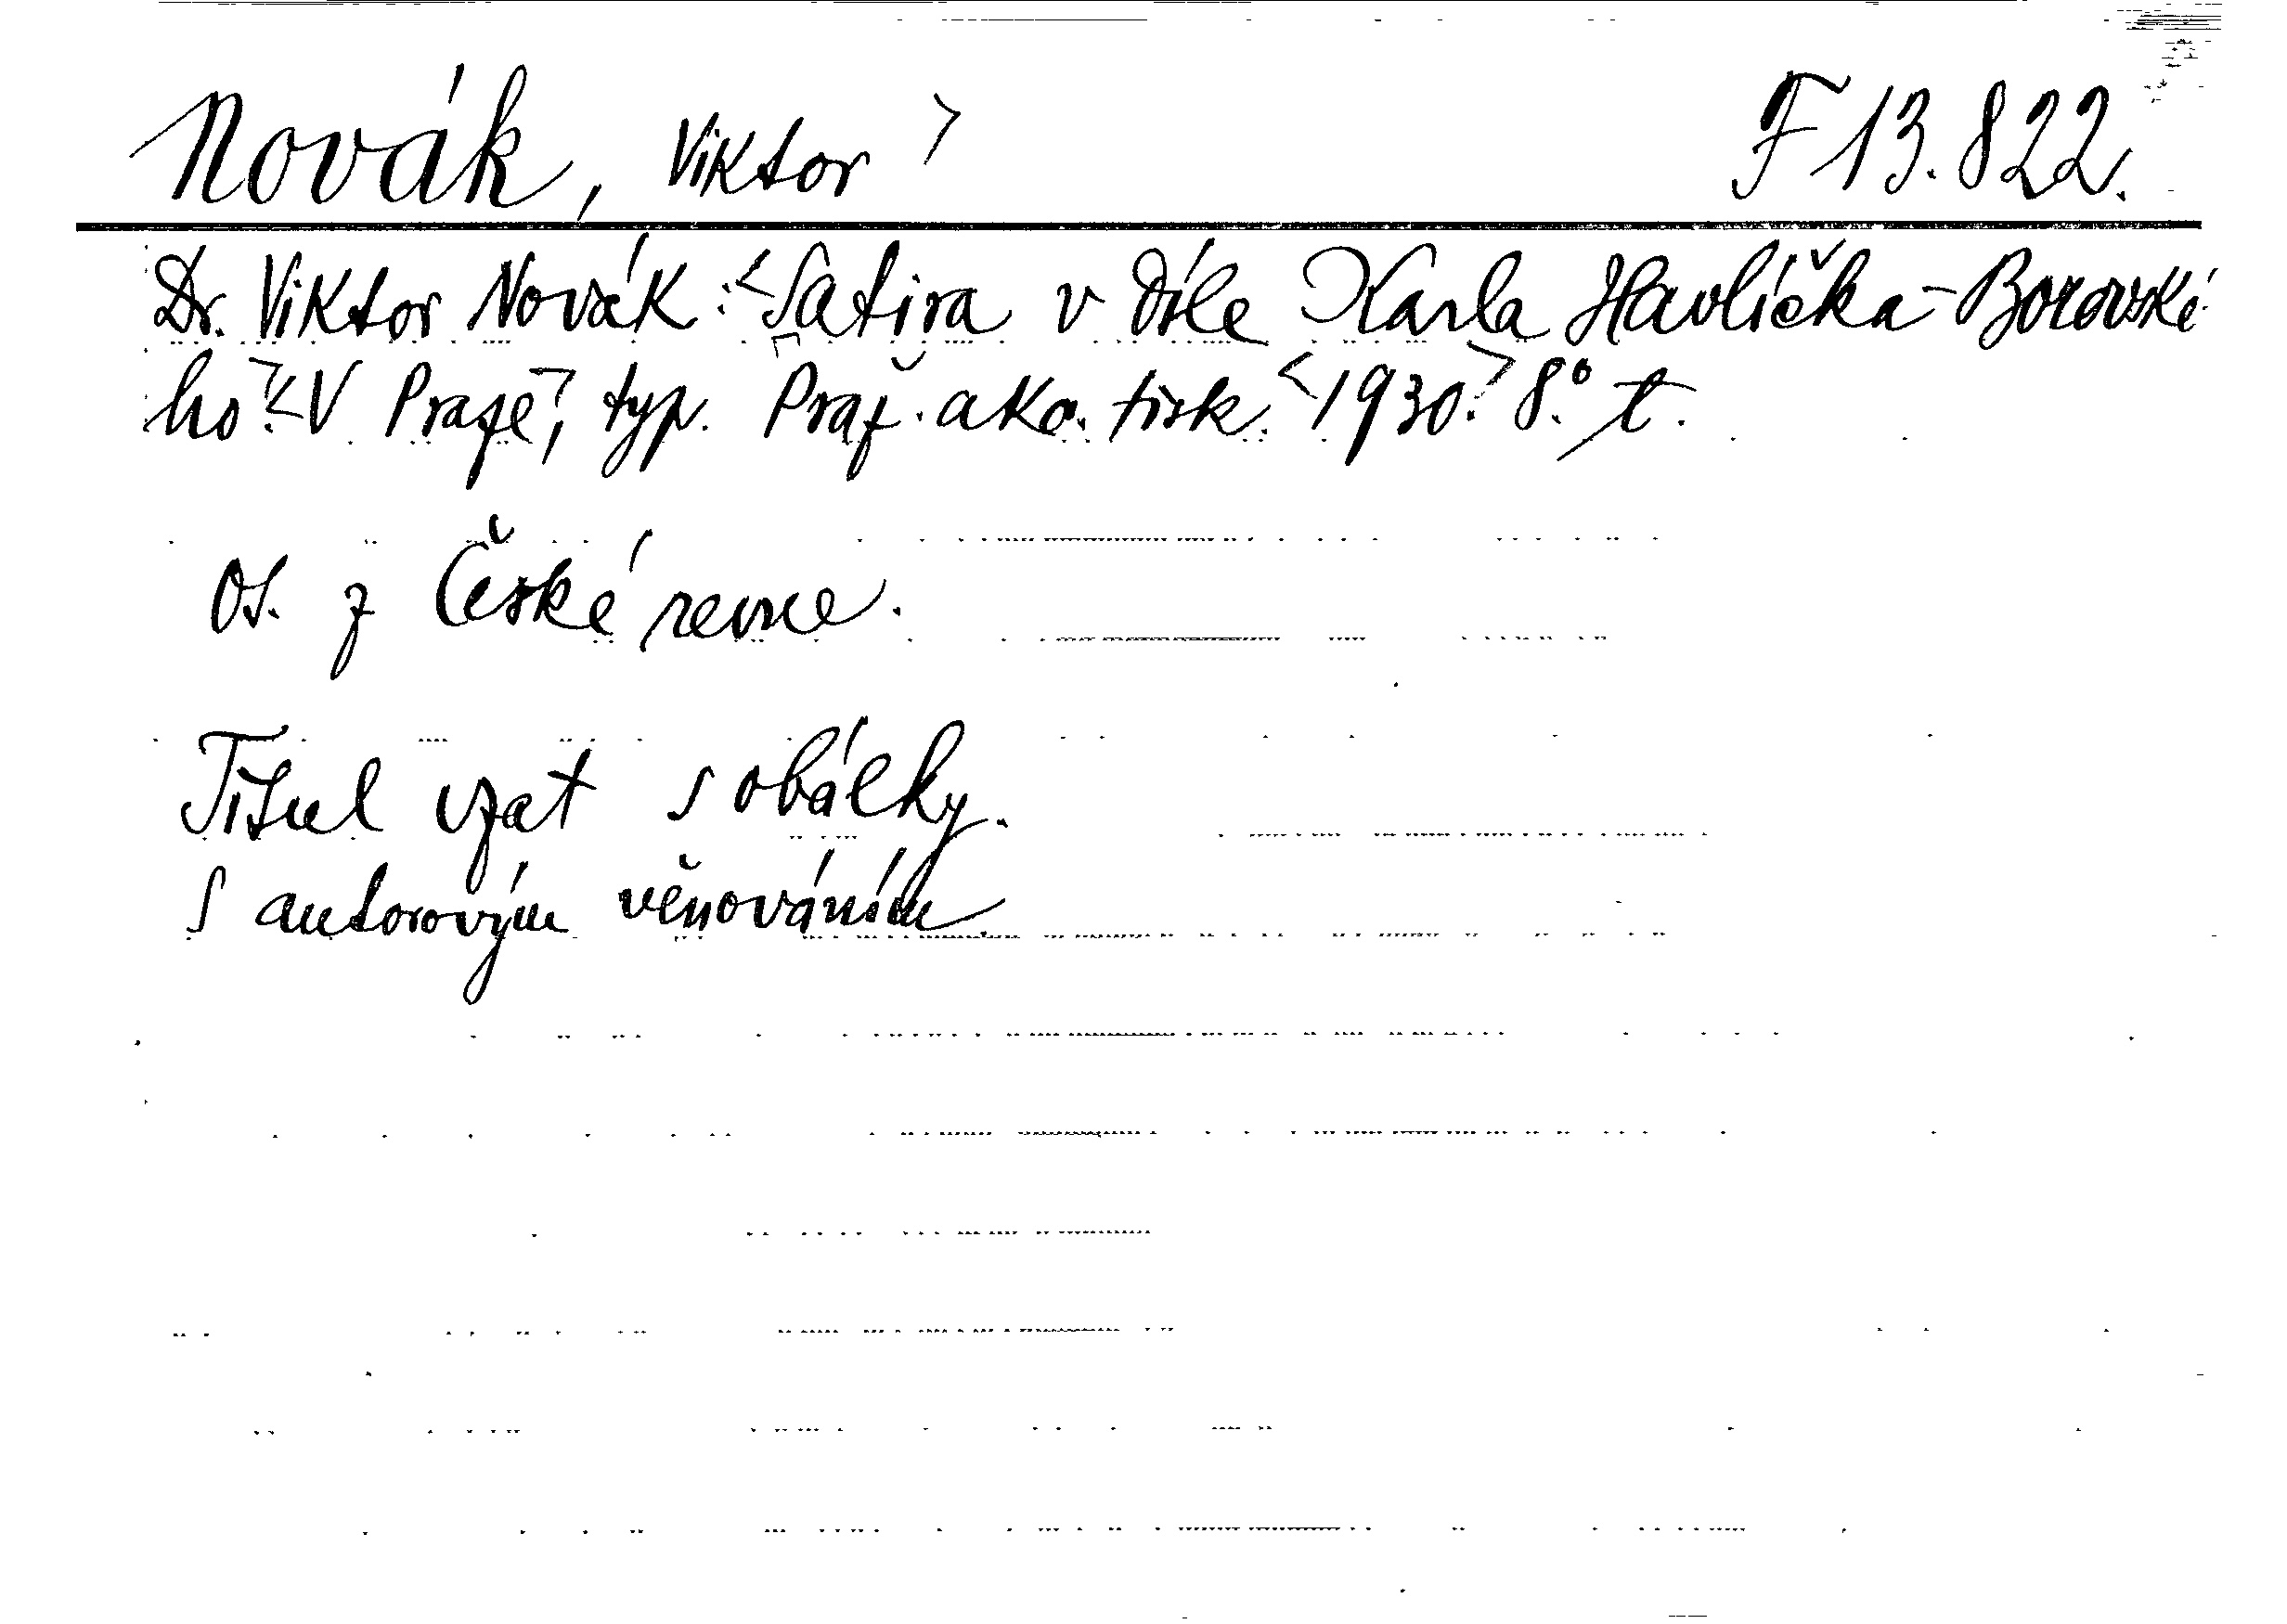 Novák, Viktor > F 13.822.
Dr. Viktor Novák: <Satira v díle Karla Havlíčka-Borovské
ho.> <V Praze>, typ. Praž. aka. tisk. <1930.> 8°. t.
Ot. z České revue.
Titul vzat s obálky.
S autorovým věnováním.